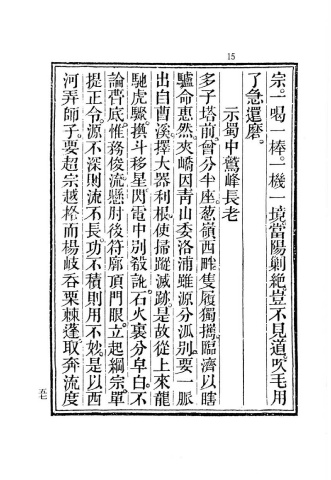 15
宗。一喝一棒。一機一境。當陽剿絕。豈不見道。吹毛用
了急還磨。
示蜀中鷲峰長老
多子塔前。曾分半座。葱嶺西畔。隻履獨攜。臨濟以瞎
驢命惠然夾嶠因靑山委洛浦雖源分派別。要一脈
出自曹溪。擇大器利根。使掃蹤滅跡。是故從上來龍
馳虎驟。換斗移星。閃電中別殽訛。石火裏分皁白。不
論底。惟務俊流。懸肘後符。廓頂門眼。立起綱宗。單
提正令。源不深則流不長。功不積則用不妙。是以西
河弄師子。要超宗越格。而楊岐吞栗棘蓬。取奔流度
五七